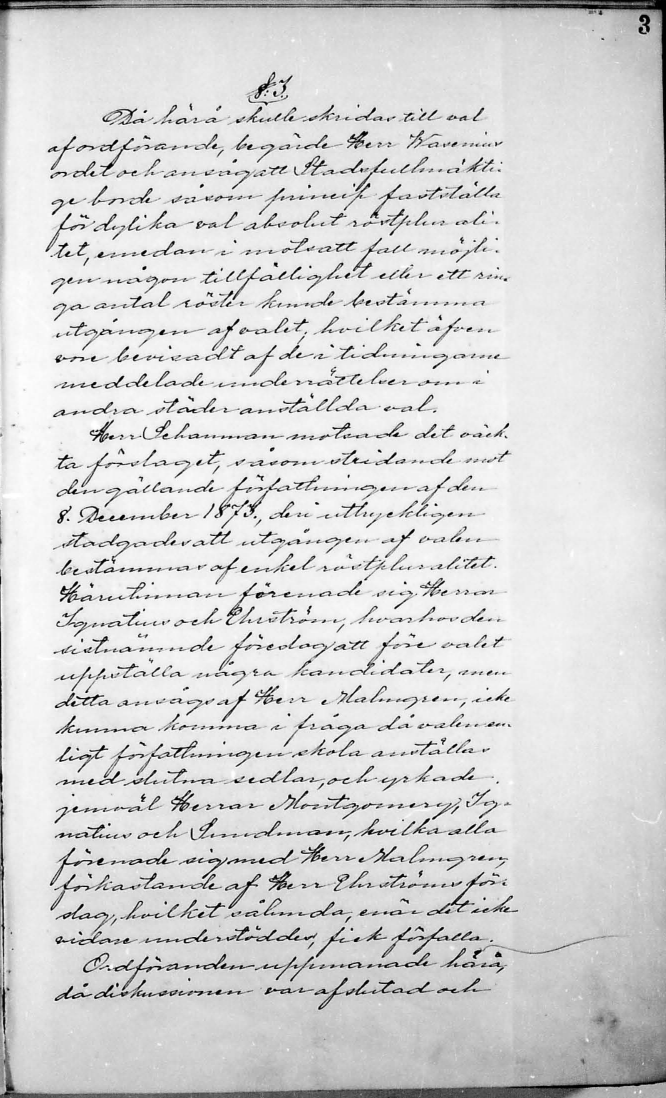 3
§. 3.
Då härå skulle skridas till val
af ordförande, begärde Herr Wasenius
ordet och ansåg att Stadsfullmäkti-
ge borde såsom princip fastställa
för dylika val absolut röstplurali-
tet, emedan i motsatt fall möjli-
gen någon tillfällighet eller ett rin-
ga antal röster kunde bestämma
utgången af valet, hvilket äfven
vore bevisadt af de i tidningarne
meddelade underrättelser om i
andra städer anställda val.
Herr Schauman motsade det väck-
ta förslaget, såsom stridande mot
den gällande författningen af den
8. December 1873, deri uttryckligen
stadgades att utgången af valen
bestämmas af enkel röstpluralitet.
Härutinnan förenade sig Herrar
Ignatius och Ehrström, hvarhos den
sistnämnde föreslog att före valet
uppställa några kandidater, men
detta ansågs af Herr Malmgren, icke
kunna komma i fråga då valen en-
ligt författningen skola anställas
med slutna sedlar, och yrkade
jemväl Herrar Montgomery, Ig-
natius och Sundman, hvilka alla
förenade sig med Herr Malmgren,
förkastande af Herr Ehrströms för-
slag, hvilket sålunda, enär det icke
vidare understöddes, fick förfalla.
Ordföranden uppmanade härå,
då diskussionen var afslutad och